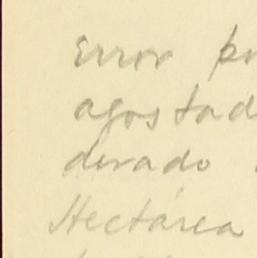 Error po
agostad
derado
Hectárea